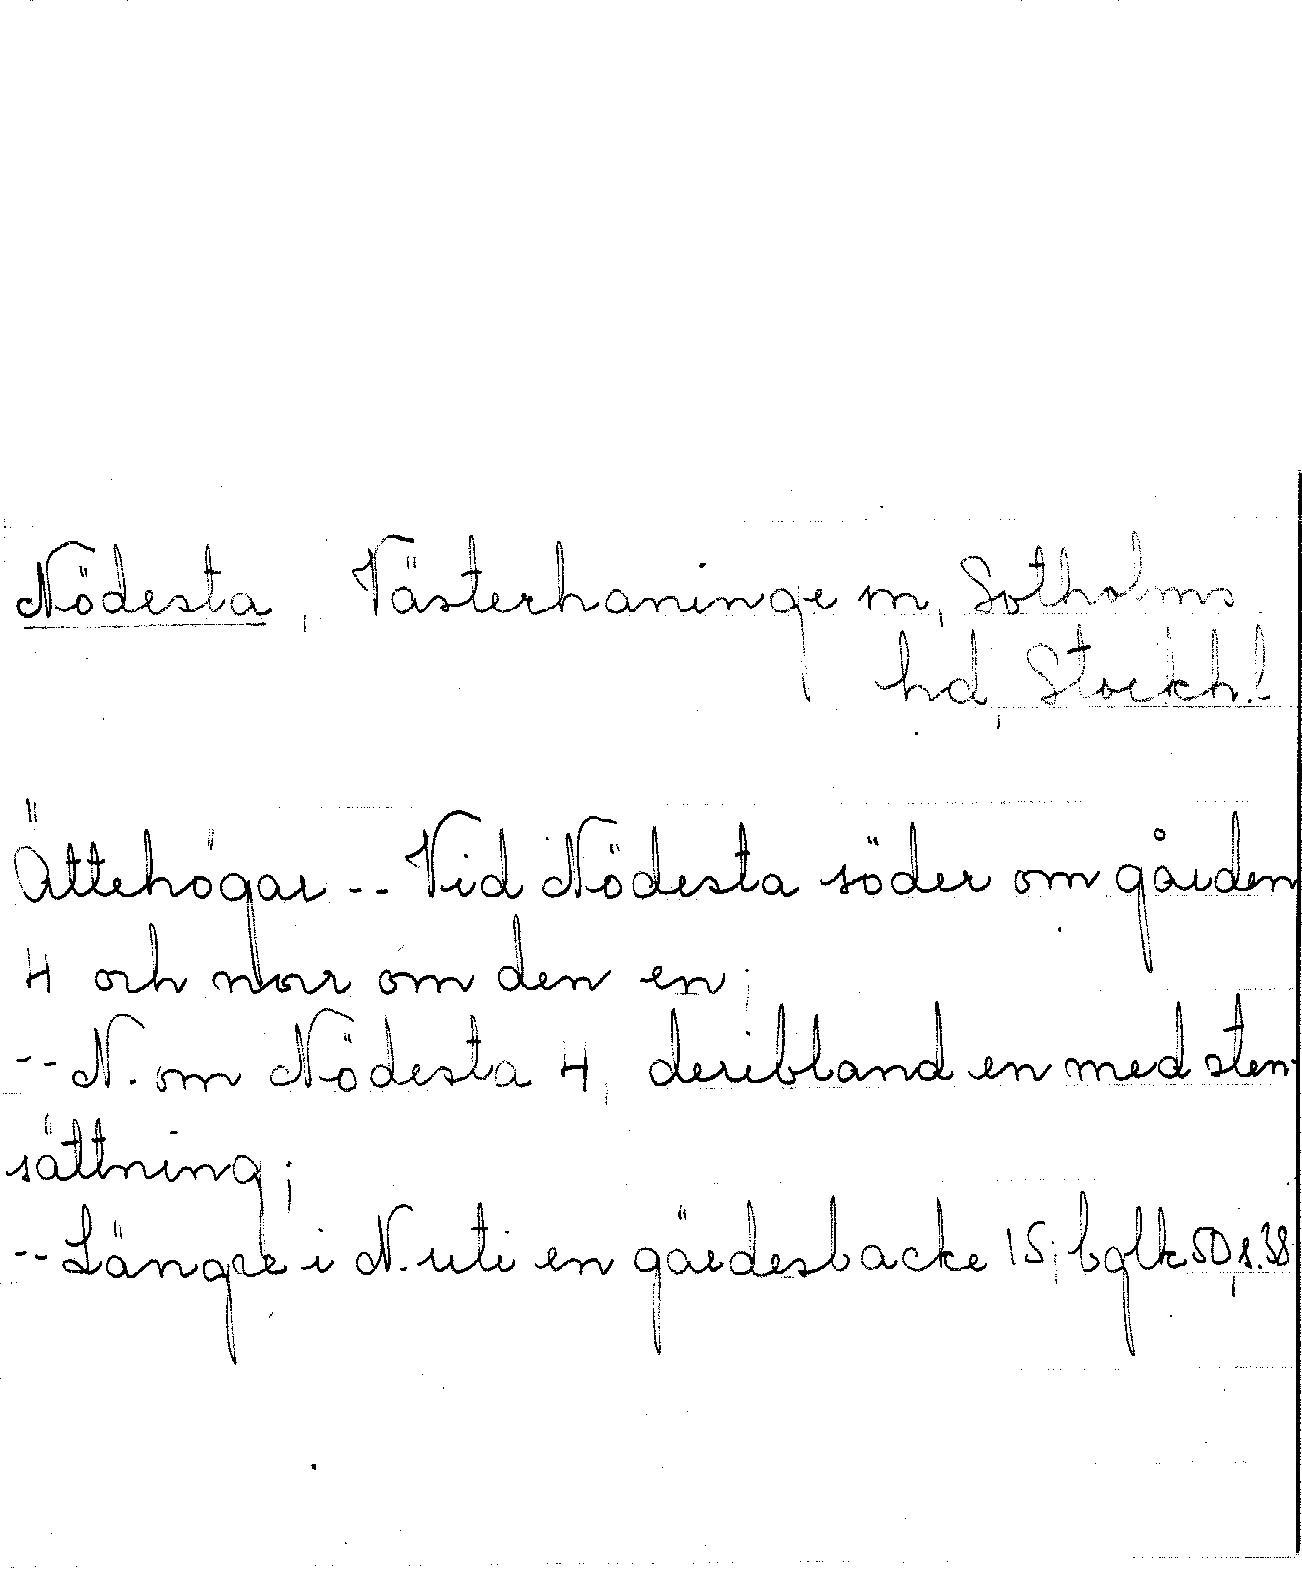 Nödesta, Västerhaninge sn, Sotholms
hd, Stockh.l
Ättehögar -- Vid Nödesta söder om gården
4 och norr om den en;
-- N. om Nödesta 4, deribland en med sten-
sättning;
-- Längre i N. uti en gärdesbacke 15; bglk 50, s. 38